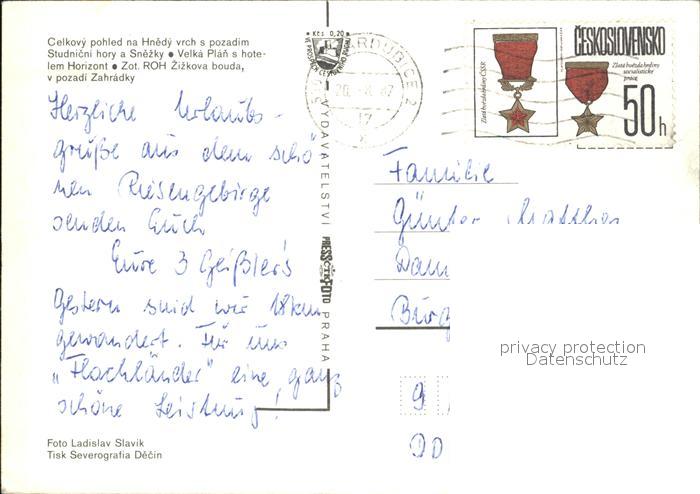 Celkový pohled na Hnědý vrch s pozadim
Studniční hory a Sněžky • Velká Pláň s hote-
lem Horizont • Zot. ROH Žižkova bouda,
v pozadí Zahrádky
Herzliche Urlaubs-
grüße aus dem schö-
nen Riesengebirge
senden Euch
Eure 3 Geißler's
Gestern sind wir 18km
gewandert. Für uns
„Flachländer" eine ganz
schöne Leistung!
Foto Ladislav Slavík
Tisk Severografia Děčín
Kčs 0,20
VYDAVATELSTVÍ PRESSFOTO PRAHA
PARDUBICE 2
17
Zlatá hvězda hrdiny ČSSR
ČESKOSLOVENSKO
Zlatá hvězda hrdiny
socialistické
práce
50h
Familie
Günter
Dam
Burg
9
90
privacy protection
Datenschutz